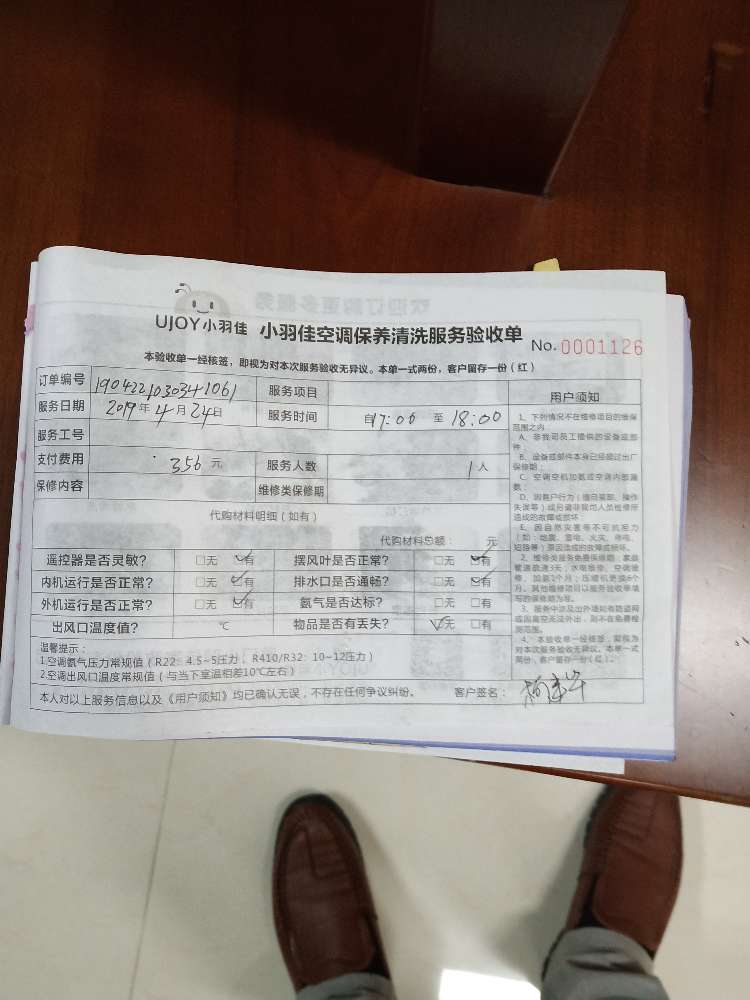 UJOY小羽佳 小羽佳空调保养清洗服务验收单 No. 0001126
本验收单一经核签，即视为对本次服务验收无异议。本单一式两份，客户留存一份（红）
订单编号 1904221030341061 服务项目
服务日期 2019年4月24日 服务时间 自17:00 至 18:00
服务工号
支付费用 356 元 服务人数 1人
保修内容 维修类保修期
代购材料明细（如有）
代购材料总额： 元
遥控器是否灵敏? □无 ☑有 摆风叶是否正常? □无 ☑有
内机运行是否正常? □无 ☑有 排水口是否通畅? □无 ☑有
外机运行是否正常? □无 ☑有 氨气是否达标? □无 □有
出风口温度值? ℃ 物品是否有丢失? ☑无 □有
温馨提示：
1.空调氨气压力常规值（R22：4.5~5压力，R410/R32：10~12压力）
2.空调出风口温度常规值（与当下室温相差10℃左右）
本人对以上服务信息以及《用户须知》均已确认无误，不存在任何争议纠纷。 客户签名：
用户须知
1、下列情况不在维修项目的维保
范围之内
A、非我司员工提供的设备或部
件；
B、设备或部件本身已经超过出厂
保修期；
C、空调空机加氨或空调内部漏
氨；
D、因客户行为（擅自装卸、操作
失误等）或另请非我司人员检修所
造成的故障或损坏
E、因自然灾害等不可抗拒力
（如：地震、雷电、火灾、停电、
短路等）原因造成的故障或损坏。
3、服务中涉及出外墙如有防盗网
或因高空无法外出，则不在免费检
测范围。
4、本验收单一经核签，即视为
对本次服务验收无异议。本单一式
两份，客户留存一份（红）。